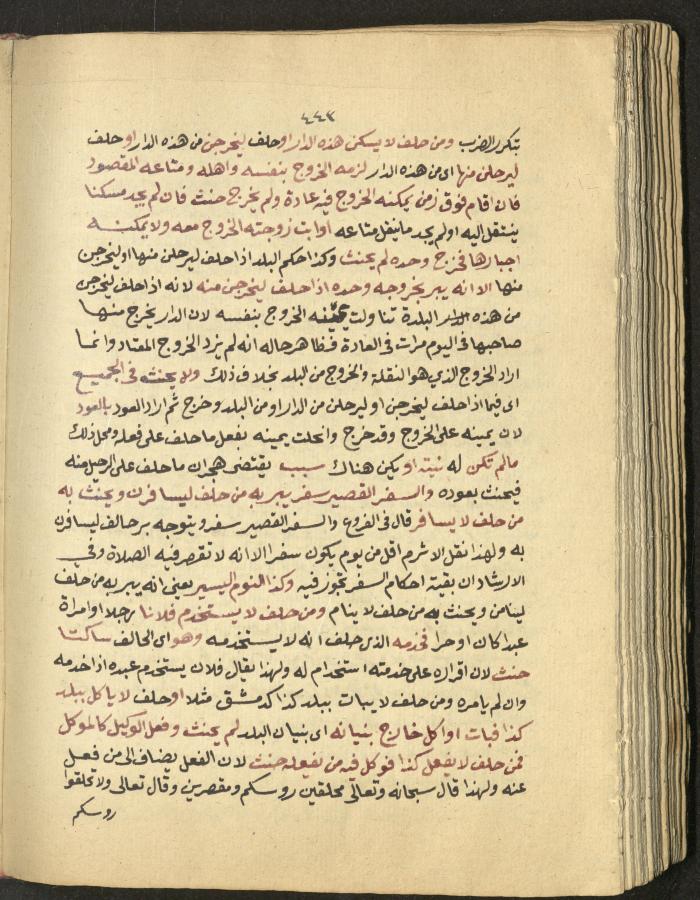 ٤٤٣
بتكرر الضرب ومن حلف لا يسكن هذه الدار او حلف ليخرجن من هذه الدار او حلف
ليرحلن منها اى من هذه الدار لزمه الخروج بنفسه واهله ومتاعه المقصود
فان اقام فوق زمن يمكنه الخروج فيه عادة ولم يخرج حنث فان لم يجد مسكنا
ينتقل اليه او لم يجد ما ينقل متاعه او ابت زوجته الخروج معه ولا يمكنه
اجبارها فخرج وحده لم يحنث وكذا حكم البلد اذا حلف ليرحلن منها او ليخرجن
منها الا انه يبر بخروجه وحده اذا حلف ليخرجن منه لانه اذا حلف ليخرجن
من هذه البلدة تناولت يمينه الخروج بنفسه لان الدار يخرج منها
صاحبها في اليوم مرات في العادة فظاهر حاله انه لم يرد الخروج المعتاد وانما
اراد الخروج الذي هو النقلة والخروج من البلد بخلاف ذلك ولا يحنث في الجميع
اى فيما اذا حلف ليخرجن او ليرحلن من الدار او من البلد وخرج ثم اراد العود بالعود
لان يمينه على الخروج وقد خرج وانحلت يمينه بفعل ما حلف على فعله ومحل ذلك
مالم تكن له نية او يكن هناك سبب يقتضى هجران ما حلف على الرحيل منه
فيحنث بعوده والسفر القصير سفر يبر به من حلف ليسافرن ويحنث به
من حلف لا يسافر قال في الفروع والسفر القصير سفر ويتوجه بر حالف ليسافرن
به ولهذا نقل الاثرم اقل من يوم يكون سفرا الا انه لا تقصر فيه الصلاة وفي
الارشاد ان بقية احكام السفر تجوز فيه وكذا النوم اليسير يعني انه يبر به من حلف
لينامن ويحنث به من حلف لا ينام ومن حلف لا يستخدم فلانا رجلا او امراة
عبدا كان او حرا فخدمه الذي حلف انه لا يستخدمه وهو اى الحالف ساكتا
حنث لان اقراره على خدمته استخدام له ولهذا يقال فلان يستخدم عبده اذا خدمه
وان لم يامره ومن حلف لا يبات ببلد كذا كدمشق مثلا او حلف لا ياكل ببلد
كذا فبات او اكل خارج بنيانه اى بنيان البلد لم يحنث وفعل الوكيل كالموكل
فمن حلف لا يفعل كذا فوكل فيه من يفعله حنث لان الفعل يضاف الى من فعل
عنه ولهذا قال سبحانه وتعالى محلقين روسكم ومقصرين وقال تعالى ولا تحلقوا
روسكم